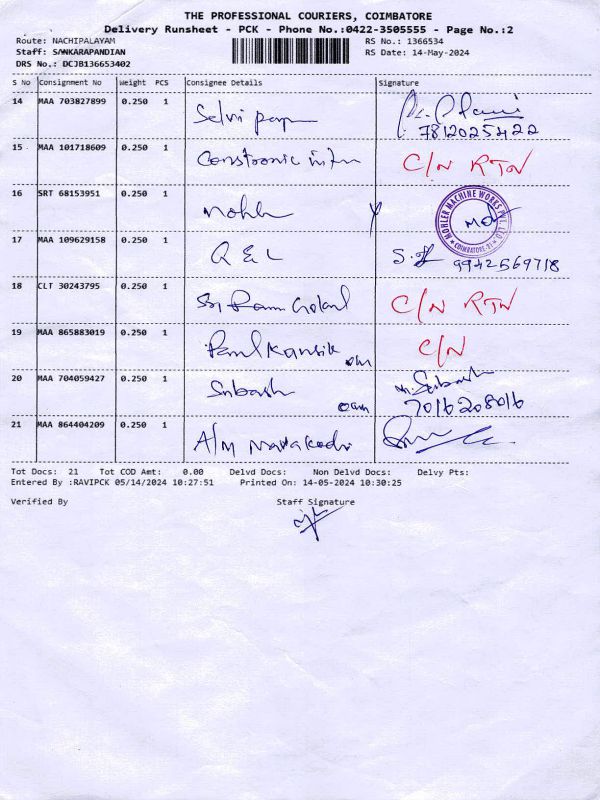 THE PROFESSIONAL COURIERS, COIMBATORE
Delivery Runsheet - PCK - Phone No.:0422-3505555 - Page No.:2
Route: NACHIPALAYAM RS No.: 1366534
Staff: SANKARAPANDIAN RS Date: 14-May-2024
DRS No.: DCJB136653402
S No Consignment No Weight PCS Consignee Details Signature
14 MAA 703827899 0.250 1 Selvi
7812025422
15 MAA 101718609 0.250 1 C/N RTN
16 SRT 68153951 0.250 1 MOHLER MACHINE WORKS PVT LTD COIMBATORE
17 MAA 109629158 0.250 1 S.
9942569718
18 CLT 30243795 0.250 1 C/N RTN
19 MAA 865883019 0.250 1 Paul Kansik C/N
20 MAA 704059427 0.250 1 Subash M. Subash
7016208016
21 MAA 864404209 0.250 1 A/M
Tot Docs: 21 Tot COD Amt: 0.00 Delvd Docs: Non Delvd Docs: Delvy Pts:
Entered By :RAVIPCK 05/14/2024 10:27:51 Printed On: 14-05-2024 10:30:25
Verified By Staff Signature